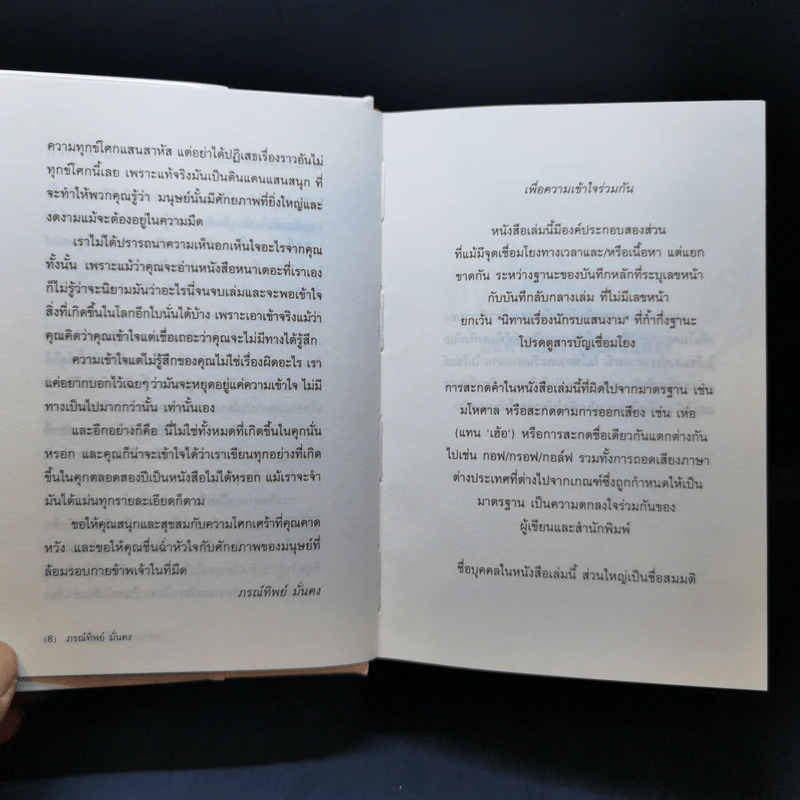 ความทุกข์โศกแสนสาหัส แต่อย่าได้ปฏิเสธเรื่องราวอันไม่
ทุกข์โศกนี้เลย เพราะแท้จริงมันเป็นดินแดนแสนสนุก ที่
จะทำให้พวกคุณรู้ว่า มนุษย์นั้นมีศักยภาพที่ยิ่งใหญ่และ
งดงามแม้จะต้องอยู่ในความมืด
เราไม่ได้ปรารถนาความเห็นอกเห็นใจอะไรจากคุณ
ทั้งนั้น เพราะแม้ว่าคุณจะอ่านหนังสือหนาเตอะที่เราเอง
ก็ไม่รู้ว่าจะนิยามมันว่าอะไรนี่จนจบเล่มและจะพอเข้าใจ
สิ่งที่เกิดขึ้นในโลกอีกใบนั้นได้บ้าง เพราะเอาเข้าจริงแม้ว่า
คุณคิดว่าคุณเข้าใจแต่เชื่อเถอะว่าคุณจะไม่มีทางได้รู้สึก
ความเข้าใจแต่ไม่รู้สึกของคุณไม่ใช่เรื่องผิดอะไร เรา
แค่อยากบอกไว้เฉยๆ ว่ามันจะหยุดอยู่แค่ความเข้าใจ ไม่มี
ทางเป็นไปมากกว่านั้น เท่านั้นเอง
และอีกอย่างก็คือ นี่ไม่ใช่ทั้งหมดที่เกิดขึ้นในคุกนั่น
หรอก และคุณก็น่าจะเข้าใจได้ว่าเราเขียนทุกอย่างที่เกิด
ขึ้นในคุกตลอดสองปีเป็นหนังสือไม่ได้หรอก แม้เราจะจำ
มันได้แม่นทุกรายละเอียดก็ตาม
ขอให้คุณสนุกและสุขสมกับความโศกเศร้าที่คุณคาด
หวัง และขอให้คุณชื่นฉ่ำหัวใจกับศักยภาพของมนุษย์ที่
ล้อมรอบกายข้าพเจ้าในที่มืด
ภรณ์ทิพย์ มั่นคง
(8) ภรณ์ทิพย์ มั่นคง
เพื่อความเข้าใจร่วมกัน
หนังสือเล่มนี้มีองค์ประกอบสองส่วน
ที่แม้มีจุดเชื่อมโยงทางเวลาและ/หรือเนื้อหา แต่แยก
ขาดกัน ระหว่างฐานะของบันทึกหลักที่ระบุเลขหน้า
กับบันทึกลับกลางเล่ม ที่ไม่มีเลขหน้า
ยกเว้น "นิทานเรื่องนักรบแสนงาม" ที่ก้ำกึ่งฐานะ
โปรดดูสารบัญเชื่อมโยง
การสะกดคำในหนังสือเล่มนี้ที่ผิดไปจากมาตรฐาน เช่น
มโหศาล หรือสะกดตามการออกเสียง เช่น เห่อ
(แทน 'เฮ้อ') หรือการสะกดชื่อเดียวกันแตกต่างกัน
ไปเช่น กอฟ/กรอฟ/กอล์ฟ รวมทั้งการถอดเสียงภาษา
ต่างประเทศที่ต่างไปจากเกณฑ์ซึ่งถูกกำหนดให้เป็น
มาตรฐาน เป็นความตกลงใจร่วมกันของ
ผู้เขียนและสำนักพิมพ์
ชื่อบุคคลในหนังสือเล่มนี้ ส่วนใหญ่เป็นชื่อสมมติ